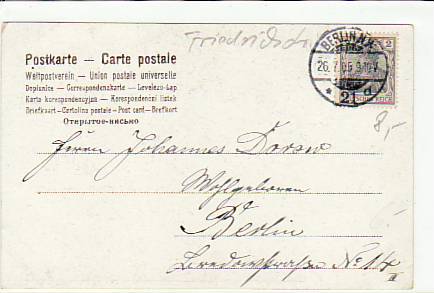 Friedrichstr
Postkarte — Carte postale
Weltpostverein — Union postale universelle
Dopisnice — Correspondenzkarte — Levelezö-Lap
Karta korespondencyjna — Korespondenční lístek
Briefkaart — Cartolina postale — Post card — Brefkort
Открытое-письмо
BERLIN N.W.
26.7.05. 9-10 V.
* 21 a
2
8,-
Herrn Johannes Dorow
Wohlgeboren
Berlin
Bredowstraße No 14
II